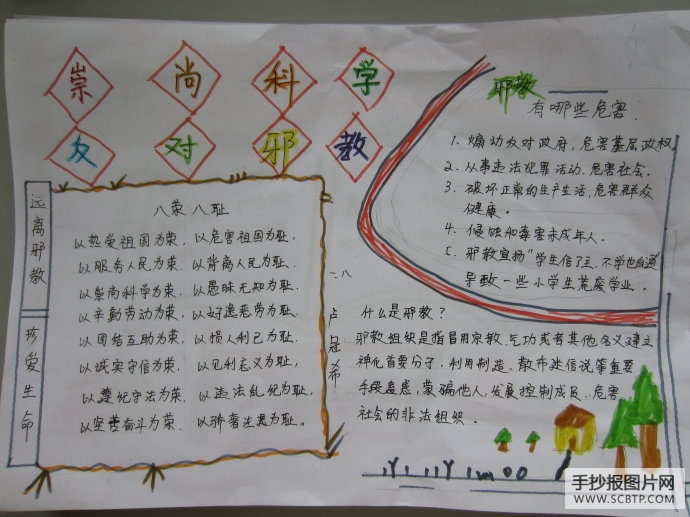 崇尚科学
反对邪教
远离邪教
珍爱生命
八荣八耻
以热爱祖国为荣，以危害祖国为耻，
以服务人民为荣，以背离人民为耻，
以崇尚科学为荣，以愚昧无知为耻，
以辛勤劳动为荣，以好逸恶劳为耻，
以团结互助为荣，以损人利己为耻，
以诚实守信为荣，以见利忘义为耻，
以遵纪守法为荣，以违法乱纪为耻，
以坚苦奋斗为荣，以骄奢注逸为耻。
二、八
卢冠希
邪教
有哪些危害
1、煽动反对政府，危害基层政权
2、从事违法犯罪活动、危害社会。
3、破坏正常的生产生活，危害群众
健康。
4、侵蚀和毒害未成年人。
5、邪教宣扬"学生信了主，不学也自通
导致一些小学生荒废学业。
什么是邪教？
邪教组织是指冒用宗教、气功或者其他名义建立
神化首要分子，利用制造、散布迷信说等重要
手段蛊惑，蒙骗他人，发展控制成员、危害
社会的非法组织。
手抄报图片网
WWW.SCBTP.COM